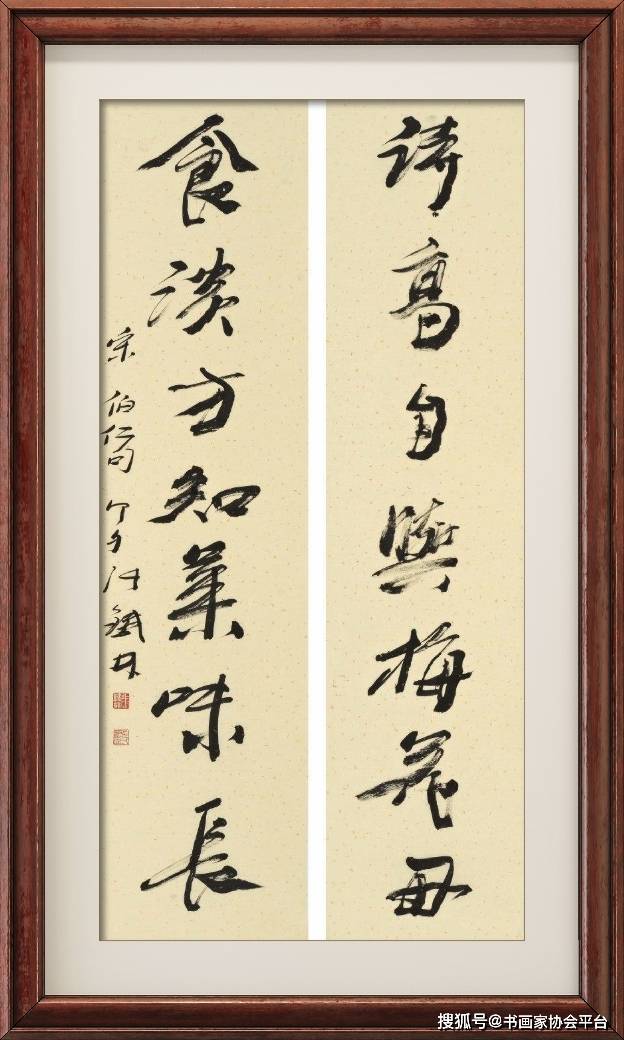 詩高自與梅花
食淡方知菜味長
宋 伯仁句 鐵林
搜狐号@书画家协会平台